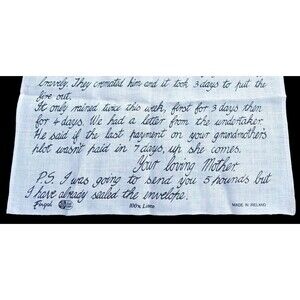 bravely. They cremated him and it took 3 days to put the
fire out.
It only rained twice this week, first for 3 days then
for 4 days. We had a letter from the undertaker.
He said if the last payment on your grandmothers
plot wasn't paid in 7 days, up she comes.
Your loving Mother.
P.S. I was going to send you 5 pounds but
I have already sealed the envelope.
100% Linen
MADE IN IRELAND